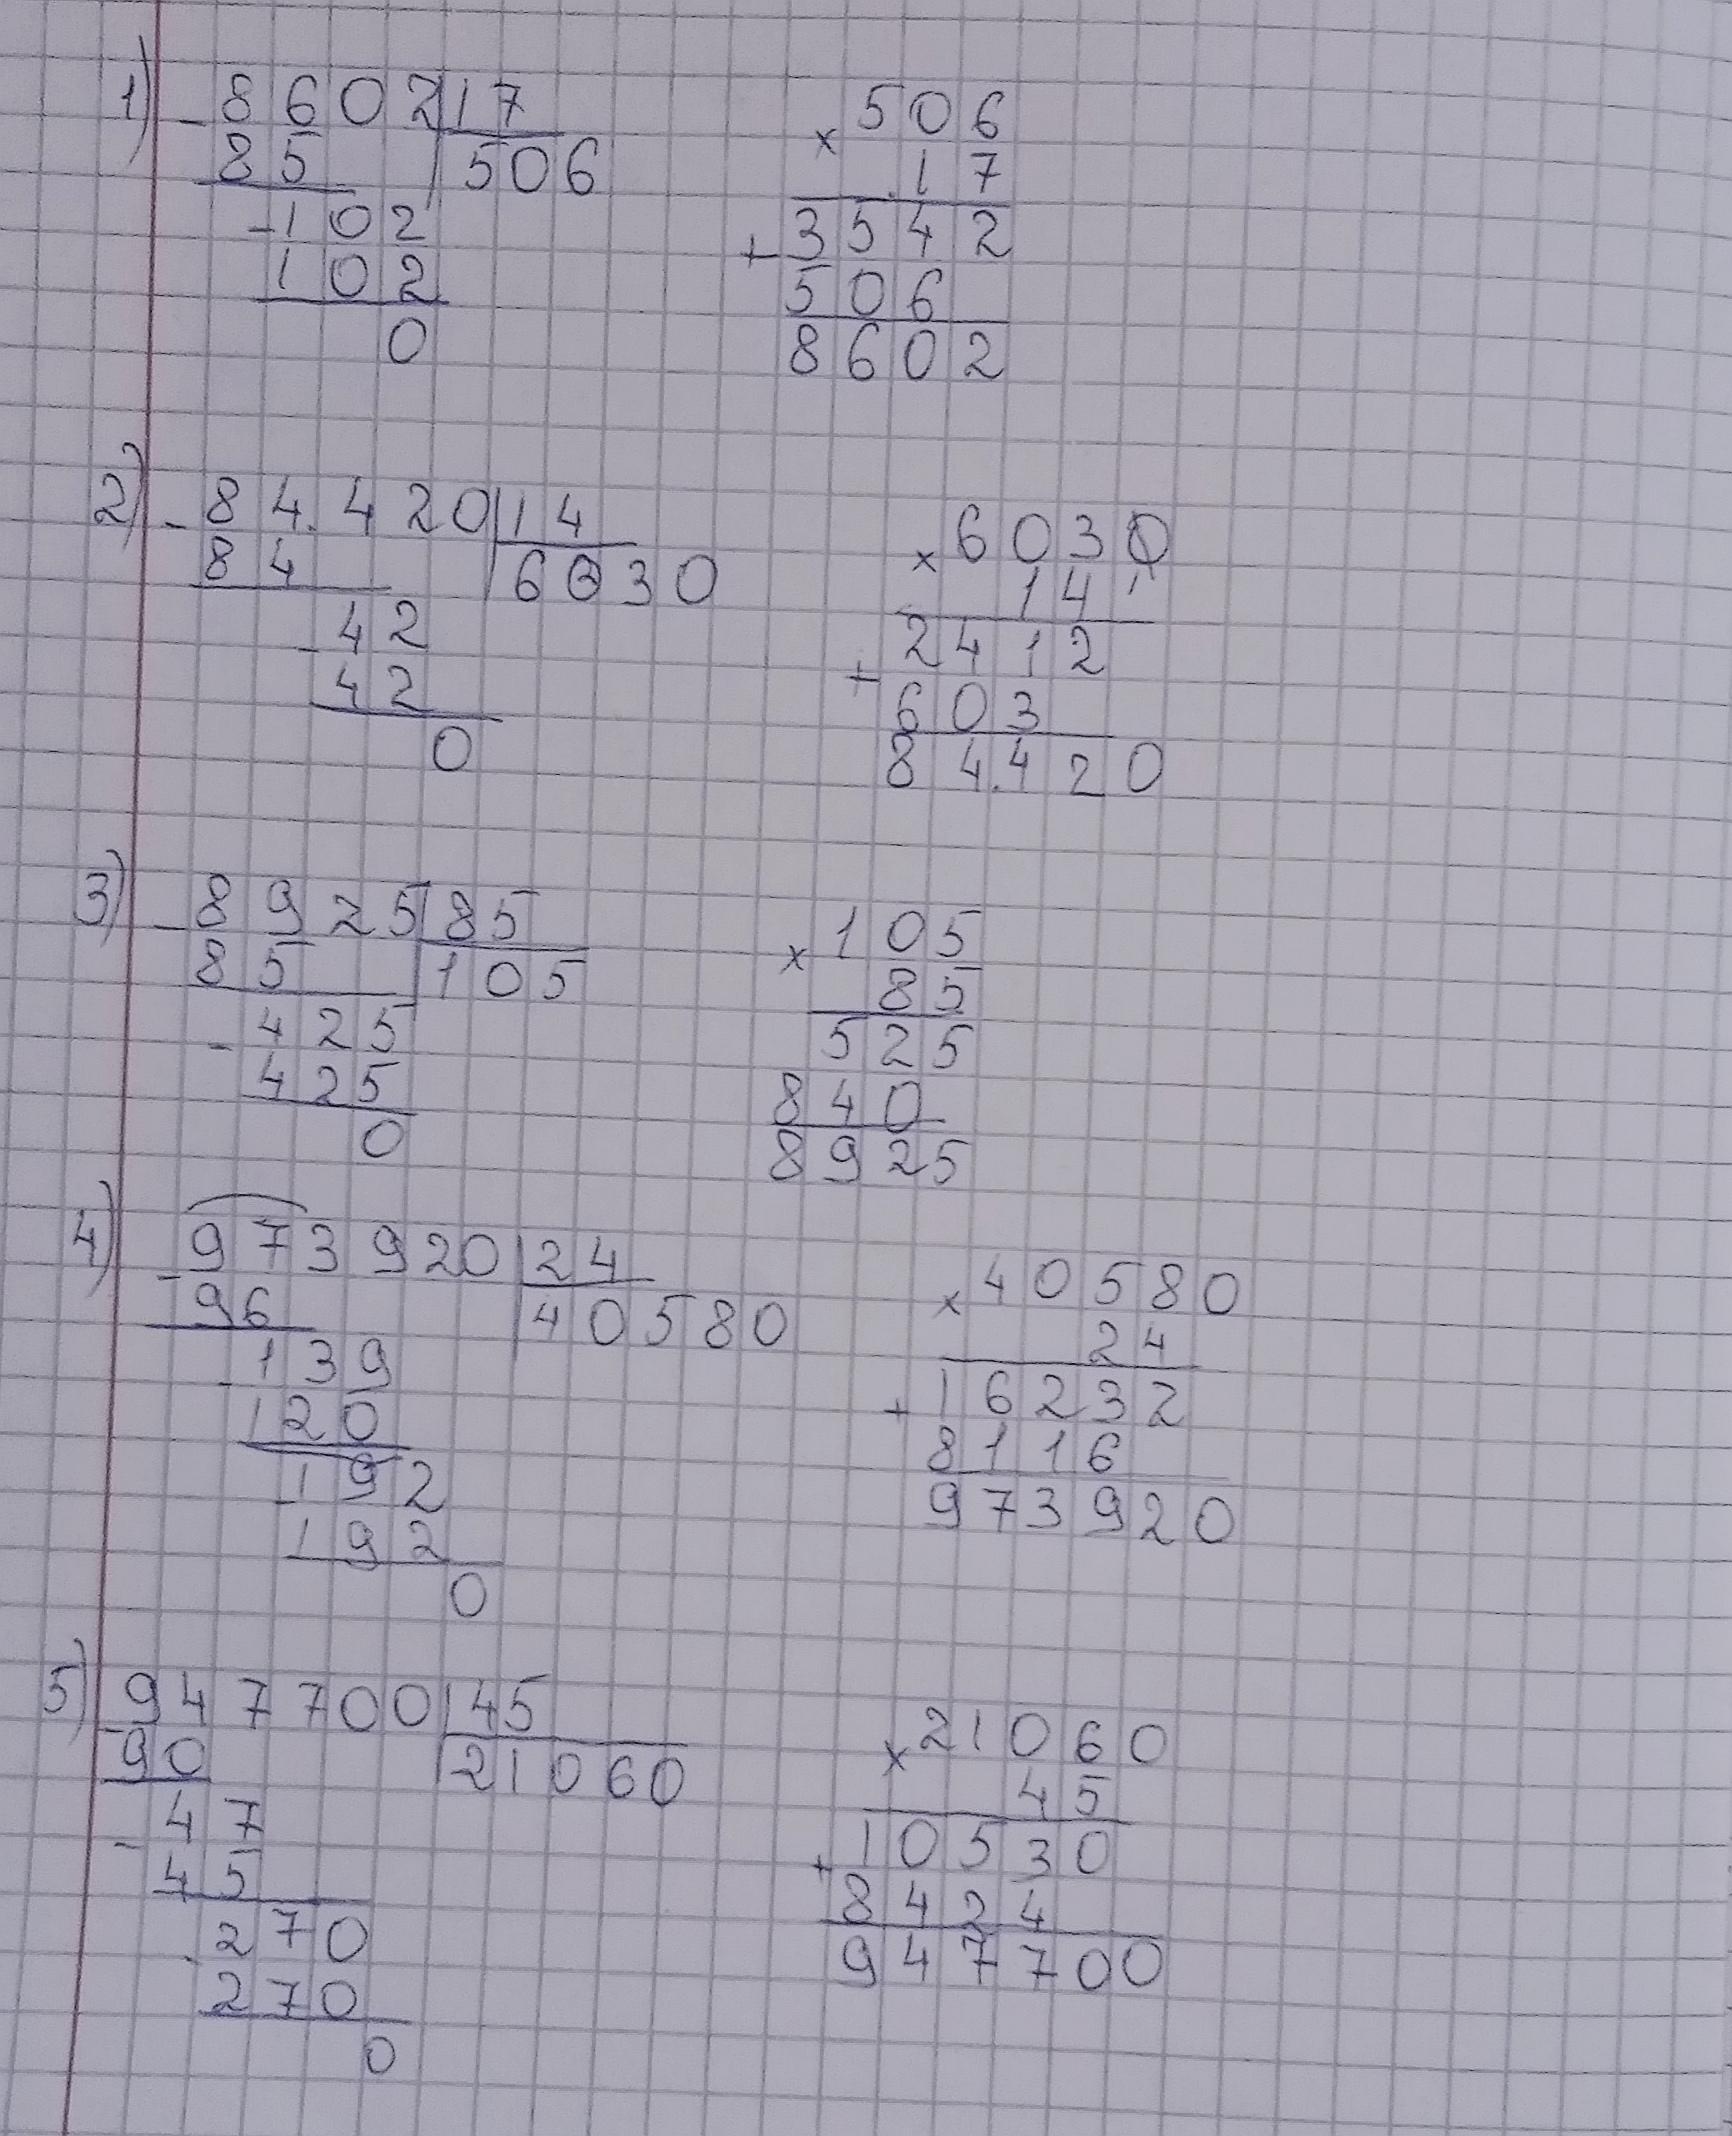 1) - 8602 | 17
85 | 506
- 102
102
0
× 506
17
+ 3542
506
8602
2) - 84.420 | 14
84 | 6030
- 42
42
0
× 6030
14
+ 2412
603
84.420
3) - 8925 | 85
85 | 105
- 425
425
0
× 105
85
525
840
8925
4) - 973920 | 24
96 | 40580
- 139
120
- 192
192
0
× 40580
24
+ 16232
8116
973920
5) - 947700 | 45
90 | 21060
- 47
45
- 270
270
0
× 21060
45
+ 10530
8424
947700